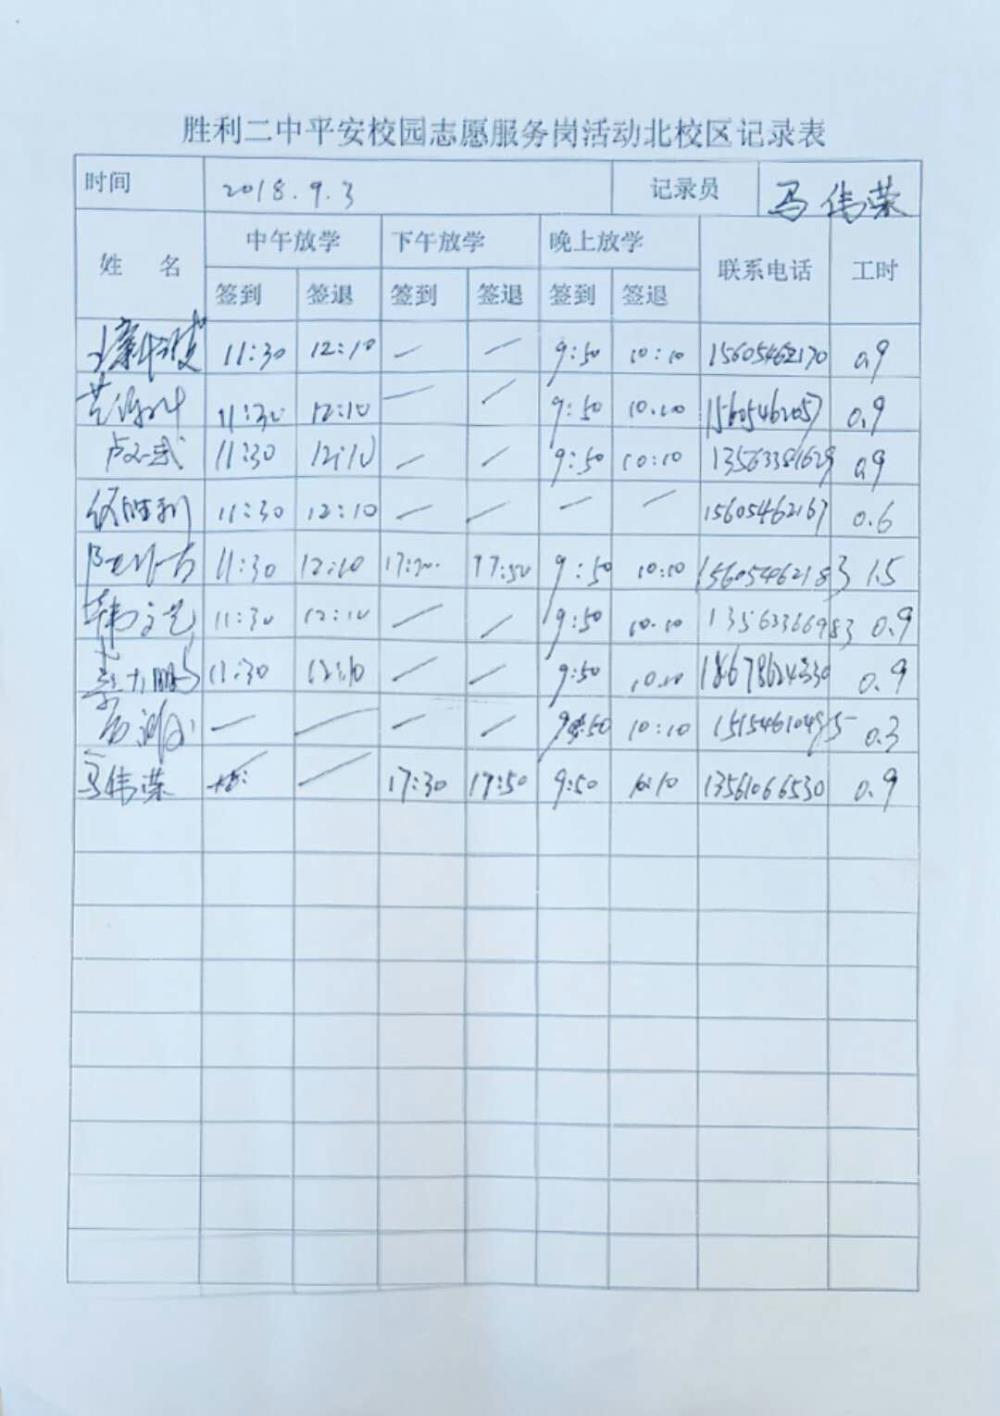 胜利二中平安校园志愿服务岗活动北校区记录表
时间 2018.9.3 记录员 马伟荣
姓 名 中午放学 下午放学 晚上放学 联系电话 工时
签到 签退 签到 签退 签到 签退
11:30 12:10 — — 9:50 10:10 15605462170 0.9
11:30 12:10 — — 9:50 10.10 15605462057 0.9
11:30 12:10 — — 9:50 10:10 13563381629 0.9
胜利 11:30 12:10 — — — — 15605462167 0.6
11:30 12:10 17:30 17:50 9:50 10:10 15605462183 1.5
韩文艺 11:30 12:10 — — 9:50 10.10 13563366983 0.9
力鹏 11:30 12:10 — — 9:50 10.10 18678624330 0.9
— — — — 9:50 10:10 15154610495 0.3
马伟荣 — 17:30 17:50 9:50 10:10 13561066530 0.9